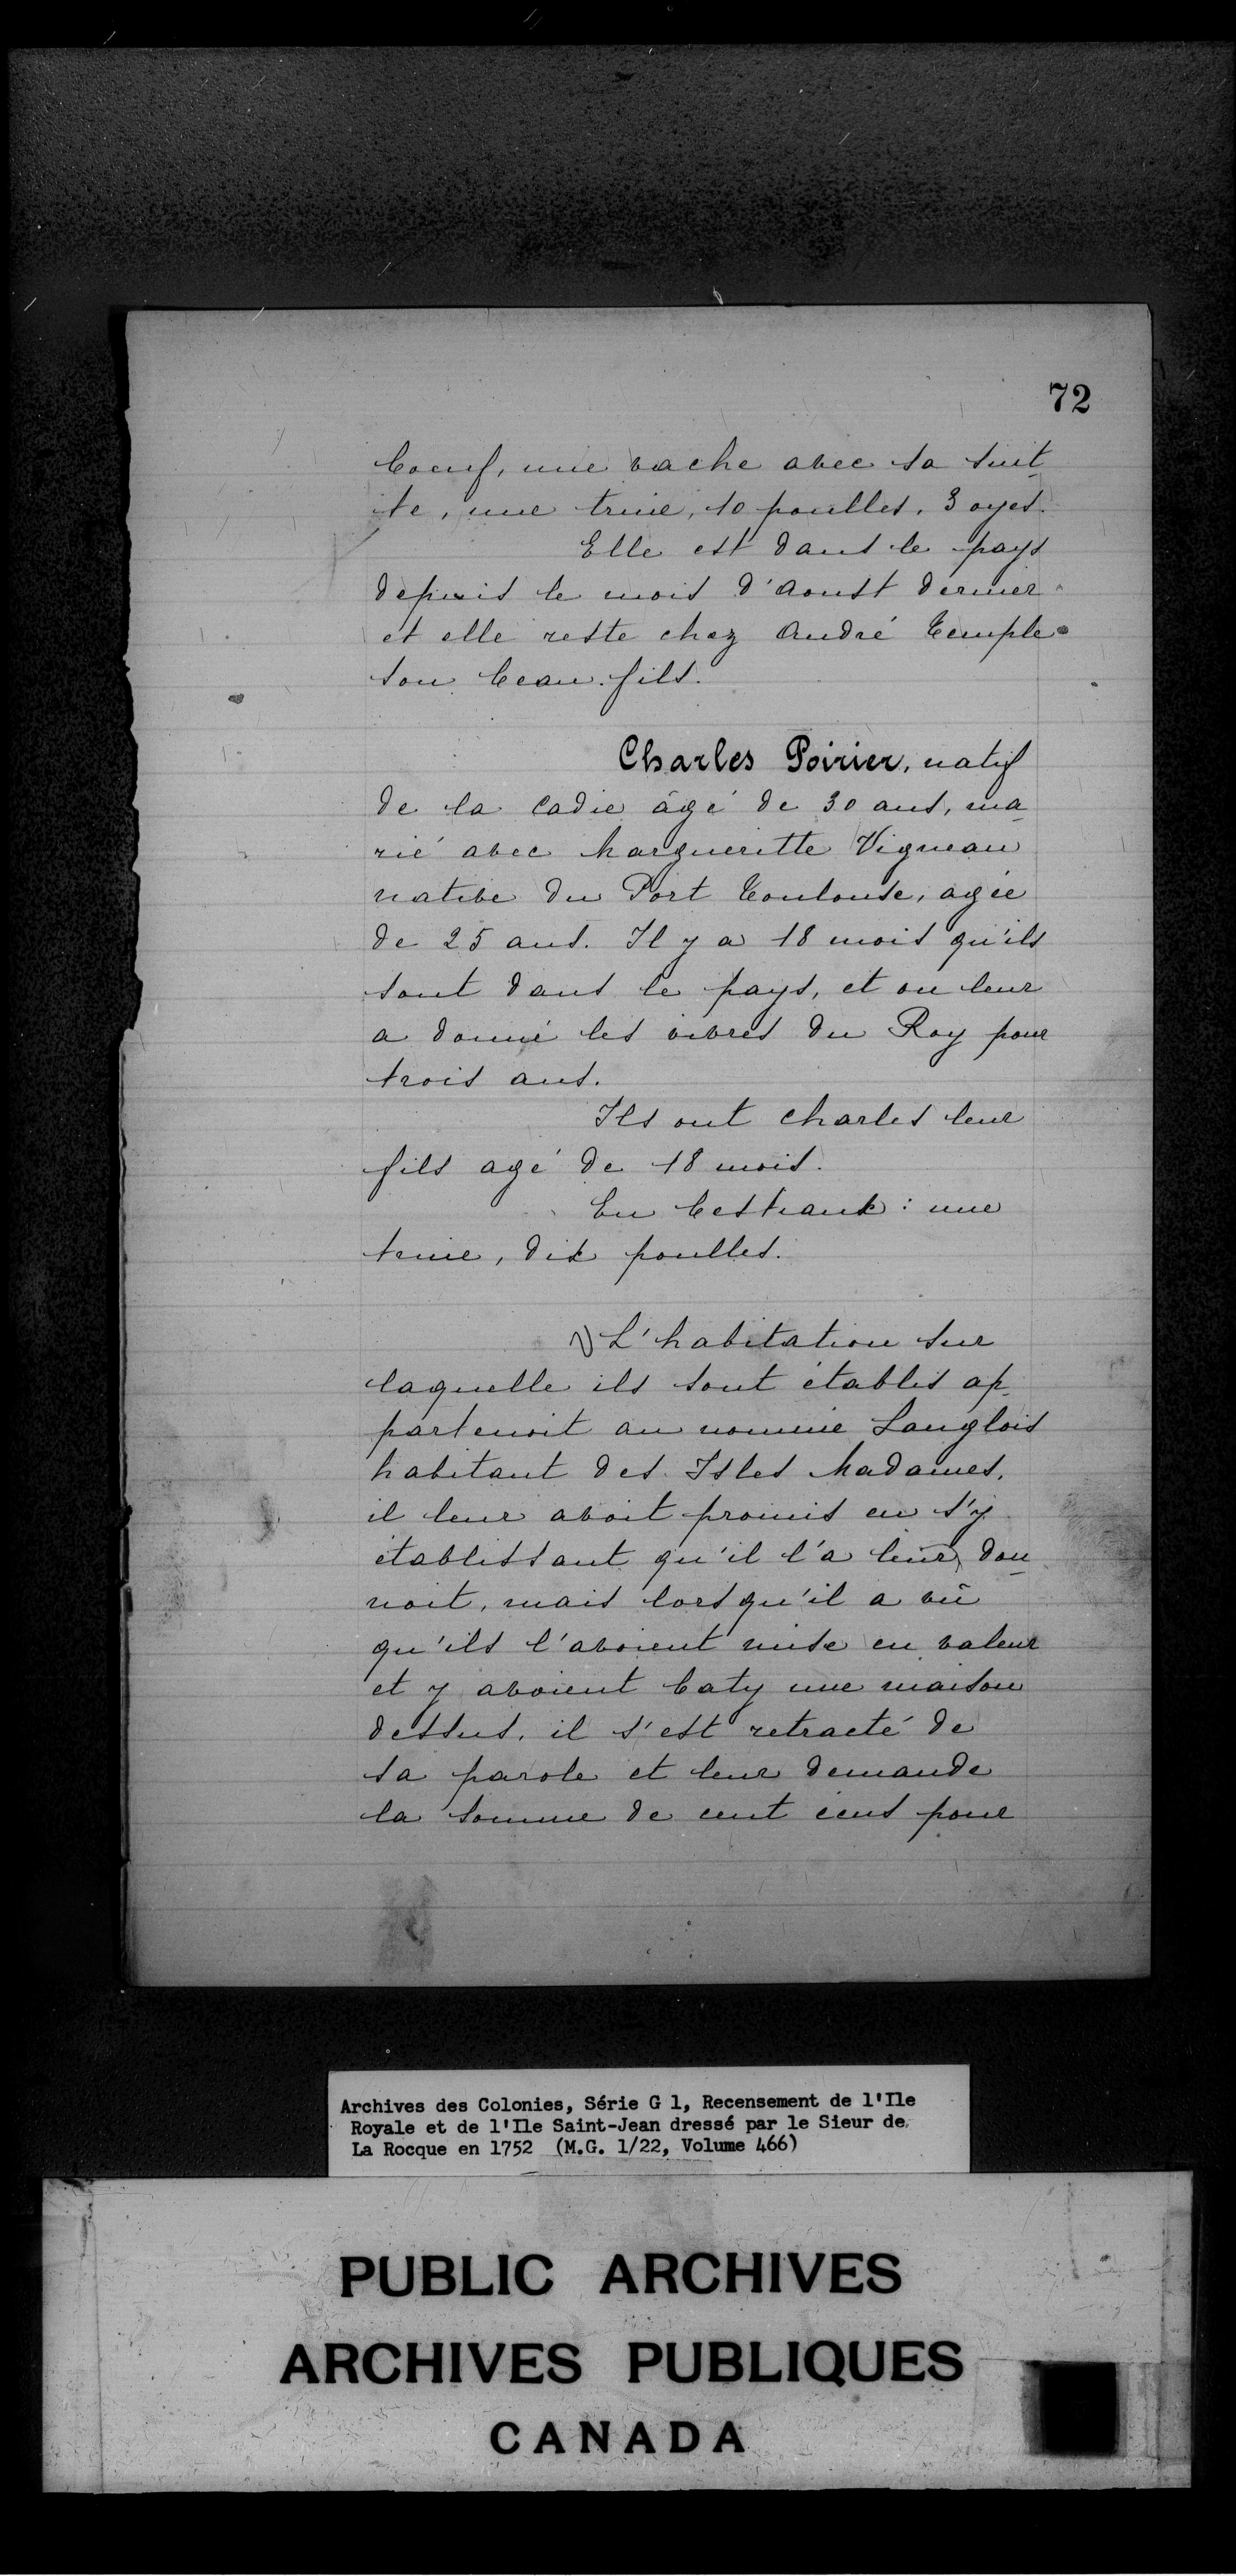 72
boeuf, une vache avec sa suit-
te, une truie, 10 poulles, 3 oyes.
Elle est dans le pays
depuis le mois d'Aoust dernier
et elle reste chez André Temple
son beau-fils.
Charles Poirier, natif
de la Cadie âgé de 30 ans, ma-
rié avec Margueritte Vigneau
native du Port Toulouse, agée
de 25 ans. Il y a 18 mois qu'ils
sont dans le pays, et on leur
a donné les vivres du Roy pour
trois ans.
Ils ont Charles leur
fils agé de 18 mois.
En bestiaux : une
truie, dix poulles.
L'habitation sur
laquelle ils sont établis ap-
partenoit au nommé Langlois
habitant des Isles Madames,
il leur avoit promis en s'y
établissant qu'il l'a leur don-
noit, mais lorsqu'il a vû
qu'ils l'avoient mise en valeur
et y avoient baty une maison
dessus, il s'est retracté de
sa parole et leur demande
la somme de cent écus pour
Archives des Colonies, Série G 1, Recensement de l'Ile
Royale et de l'Ile Saint-Jean dressé par le Sieur de
La Rocque en 1752 (M.G. 1/22, Volume 466)
PUBLIC ARCHIVES
ARCHIVES PUBLIQUES
CANADA